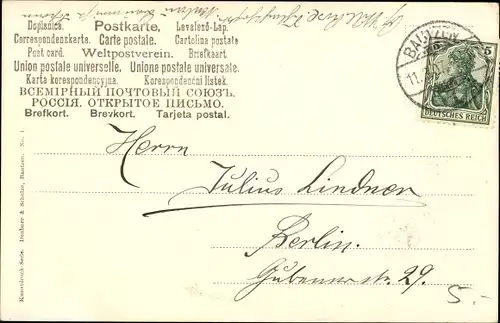 Dopisnice. Postkarte. Levelező-Lap.
Correspondenzkarte. Carte postale. Cartolina postale
Post card. Weltpostverein. Briefkaart.
Union postale universelle. Unione postale universale.
Karta korespondencyjna. Korespondenční lístek.
ВСЕМІРНЫЙ ПОЧТОВЫЙ СОЮЗЪ.
РОССІЯ. ОТКРЫТОЕ ПИСЬМО.
Brefkort. Brevkort. Tarjeta postal.
BAUTZEN
11.
5
DEUTSCHES REICH
Herrn
Julius Lindner
Berlin.
Gubenerstr. 29.
5.-
Kunstdruck-Serie. Bautzen. No. 1.